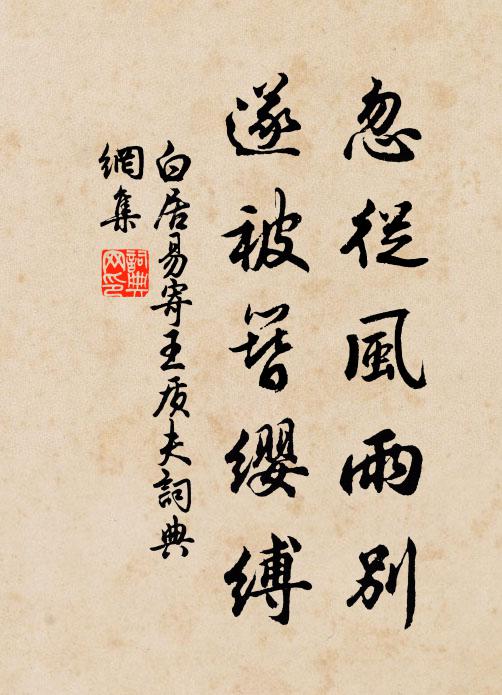 忽從風雨別
遂被簪纓縛
白居易寄王质夫詞典
網集
詞典
网印